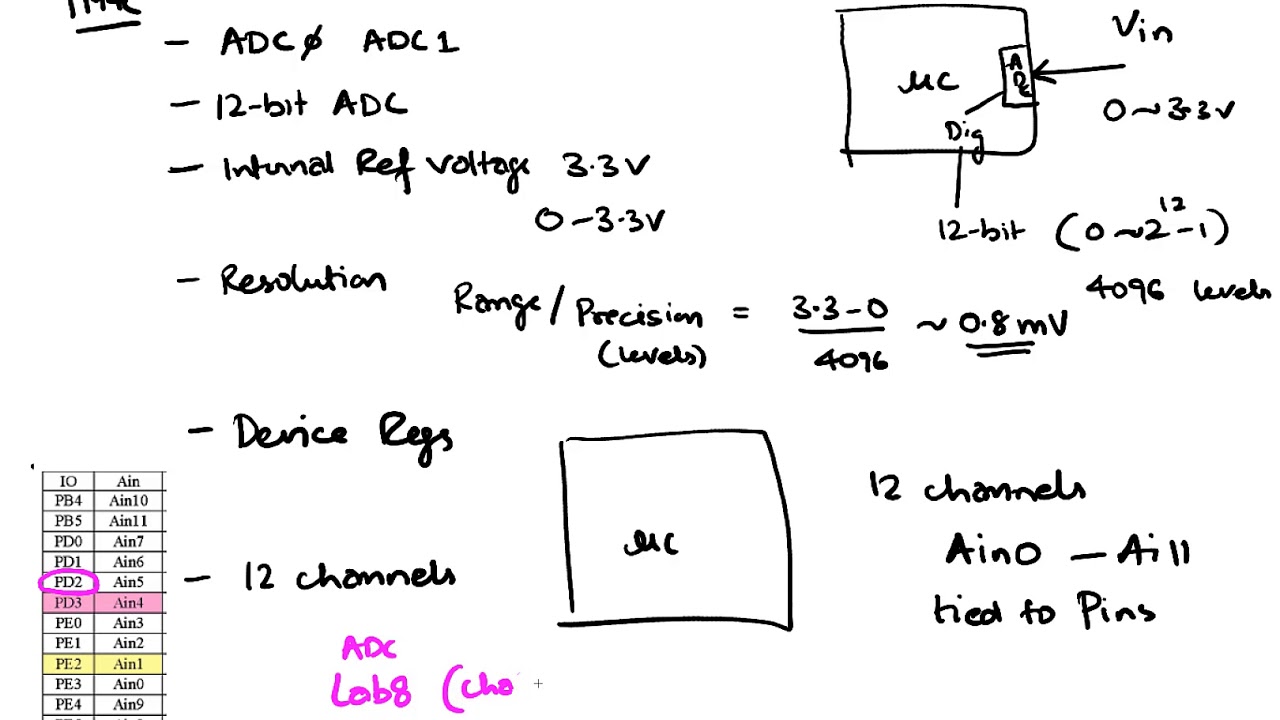 - ADC0 ADC1
- 12-bit ADC
- Internal Ref voltage 3.3V
0-3.3V
- Resolution
Range/Precision (levels) = 3.3-0 / 4096 ~ 0.8mV
- Device Regs
- 12 channels
μC
ADC
Dig
Vin
0~3.3V
12-bit (0~2^12-1)
4096 levels
μC
12 channels
Ain0 - Ai11
tied to Pins
IO Ain
PB4 Ain10
PB5 Ain11
PD0 Ain7
PD1 Ain6
PD2 Ain5
PD3 Ain4
PE0 Ain3
PE1 Ain2
PE2 Ain1
PE3 Ain0
PE4 Ain9
ADC
Lab8 (Cha